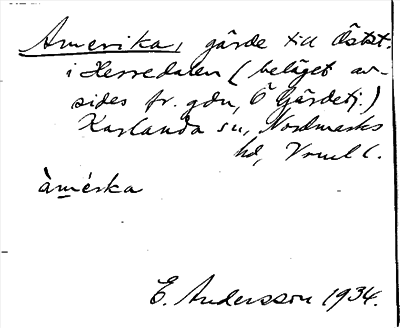 Amerika, gärde till Östst.
i Herredalen (beläget av-
sides fr. gdn, Ö Gärdetj.)
Karlanda sn, Nordmarks
hd, Vrml l.
àméska
E. Andersson 1934.